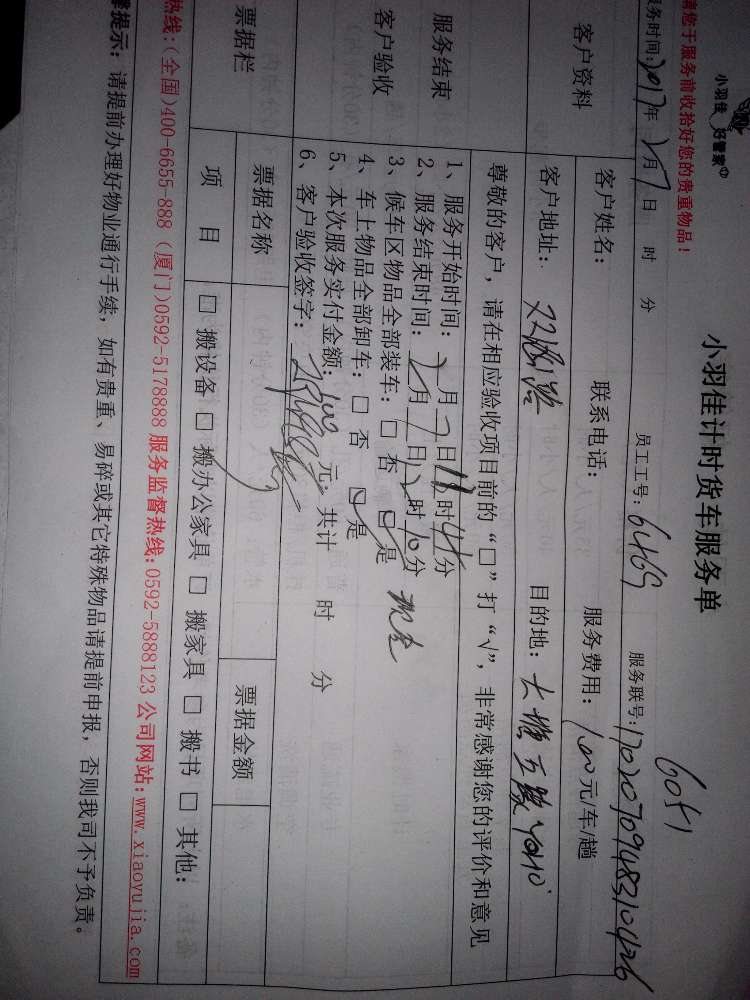 小羽佳 好管家
小羽佳计时货车服务单
6051
请您于服务前收拾好您的贵重物品！
服务时间：2017年2月7日 时 分 员工工号：6469 服务联号：
客户资料
客户姓名： 联系电话： 服务费用：100元/车/趟
客户地址： 目的地：
尊敬的客户，请在相应验收项目前的“□”打“√”，非常感谢您的评价和意见
服务结束
客户验收
1、服务开始时间：2月7日11时45分
2、服务结束时间：2月7日12时10分
3、候车区物品全部装车：□ 否 ☑ 是
4、车上物品全部卸车：□ 否 ☑ 是
5、本次服务实付金额：100元，共计 时 分
6、客户验收签字：
票据栏 票据名称 票据金额
项 目 □ 搬设备 □ 搬办公家具 □ 搬家具 □ 搬书 □ 其他：
热线：(全国)400-6655-888 (厦门)0592-5178888 服务监督热线：0592-5888123 公司网站：www.xiaoyujia.com
提示：请提前办理好物业通行手续，如有贵重、易碎或其它特殊物品请提前申报，否则我司不予负责。